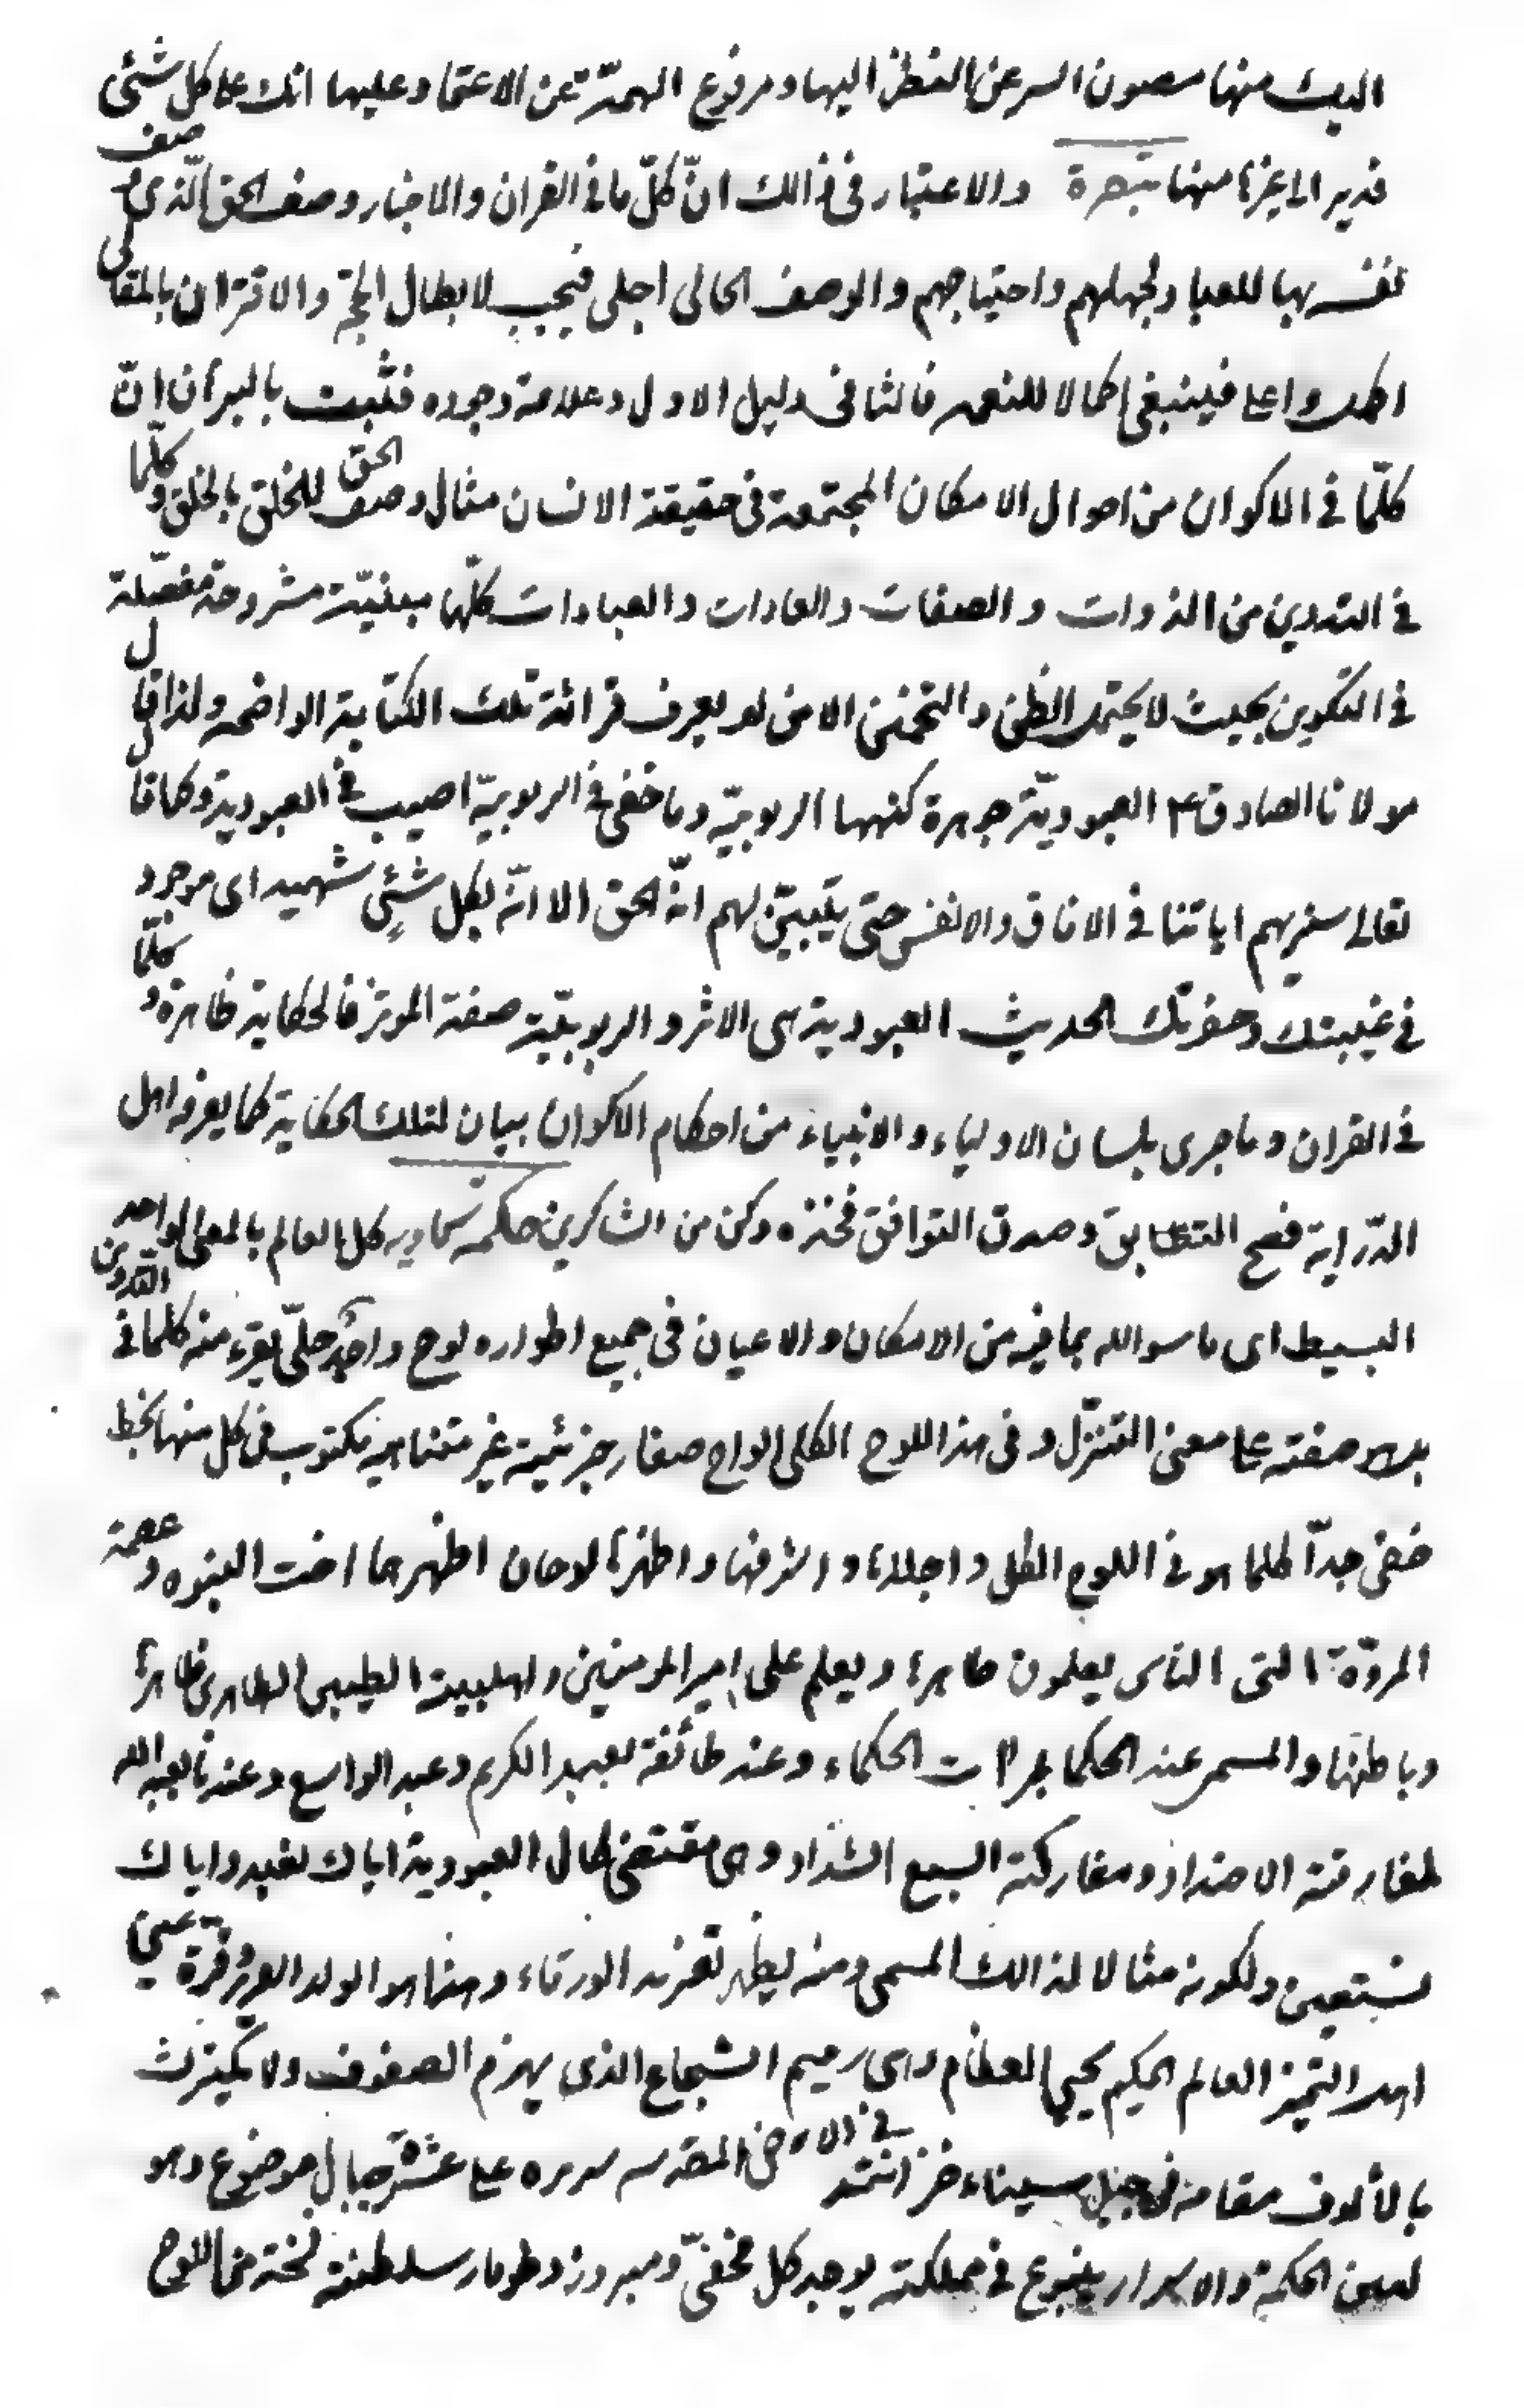 اليك منها مصون السر عن النظر اليها ومرفوع الهمّة عن الاعتماد عليها انك علی كل شئی
قدير الی غيرها منها تبصرة والاعتبار فی ذالك انّ كلّ ما فی القران والاخبار وصف الحق الّذی وصف
نفسه بها للعباد لجهلهم واحتياجهم والوصف الحالی اجلی فيجب لابطال الحجّة والاقتران بالمقالی
اكمل واعلی فينبغی اكمالا للنعمه فالثانی دليل الاول وعلامة وجوده فثبت بالبرهان انّ
كلّما فی الاكوان من احوال الامكان المجتمعة فی حقيقة الانسان مثال وصف الحق للخلق بالخلق وكلّما
فی التدوين من الذوات والصفات والعادات والعبادات كلّها مبنيّة مشروحة مفصّلة
فی التكوين بحيث لا يحتمل الظن والتخمين الا من لم يعرف قرائة تلك الكتابة الواضحه ولذا قال
مولانا الصادق ع العبوديّة جوهرة كنهها الربوبيّه وما خفی فی الربوبيّة اصيب فی العبودية وكما قال
تعالی سنريهم اياتنا فی الافاق والانفس حتی يتبيّن لهم انّه الحق الا انّه بكل شئی شهيد ای موجود
فی غيبتك وحضرتك الحديث العبودية هی الاثر والربوبيّة صفة الموثر فالحكاية ظاهرة وكلّما
فی القران وما جری بلسان الاولياء والانبياء من احكام الاكوان بيان لتلك الحكاية كما يعرفه اهل
الدّراية فصح التطابق وصدق التوافق فخذه وكن من الشاكرين حكمة سماويه كل العالم بالمعنی الواحد
البسيط ای ما سوا الله بما فيه من الامكان والاعيان فی جميع اطواره لوح واحد جلیّ يقرء منه كلما فی التدوين
صفته علی معنی التنزّل وفی هذا اللوح الكلی الواح صغار جزئية غير متناهيه مكتوب فی كل منها بخط
خفی جدّاً كلما هو فی اللوح الكلی واجلاها واشرفها واطهرها لوحان اظهرهما اخت النبوه وعصمة
المروّة التی الناس يعلمون ظاهرها ويعلم علی امير المومنين واهلبيته الطيبين الطاهرين ظاهرها
وباطنها والمسمی عند الحكما بمراات الحكماء وعند طائفة بعبد الكريم وعبد الواسع وعندنا بعبد الله
لمفارقته الاضداد ومشاركته السبع الشداد وهی مقتضی كمال العبودية اياك نعبد واياك
نستعين ولكونه مثالا لذالك المسمی ومنه يظهر تغريد الورقاء وهذا هو الولد العزيز قرة عينی
اهل التميز العالم الحكيم يحيی العظام وهی رميم الشجاع الذی يهزم الصفوف ولا يكترث
بالألوف مقامه فی جبل سيناء خزانته فی الارض المقدسه سريره علی عشرة جبال موضوع وهو
لعين الحكمة والاسرار ينبوع فی مملكته يوجد كل مخفیّ ومبروز وطومار سلطنته نسخة من اللوح